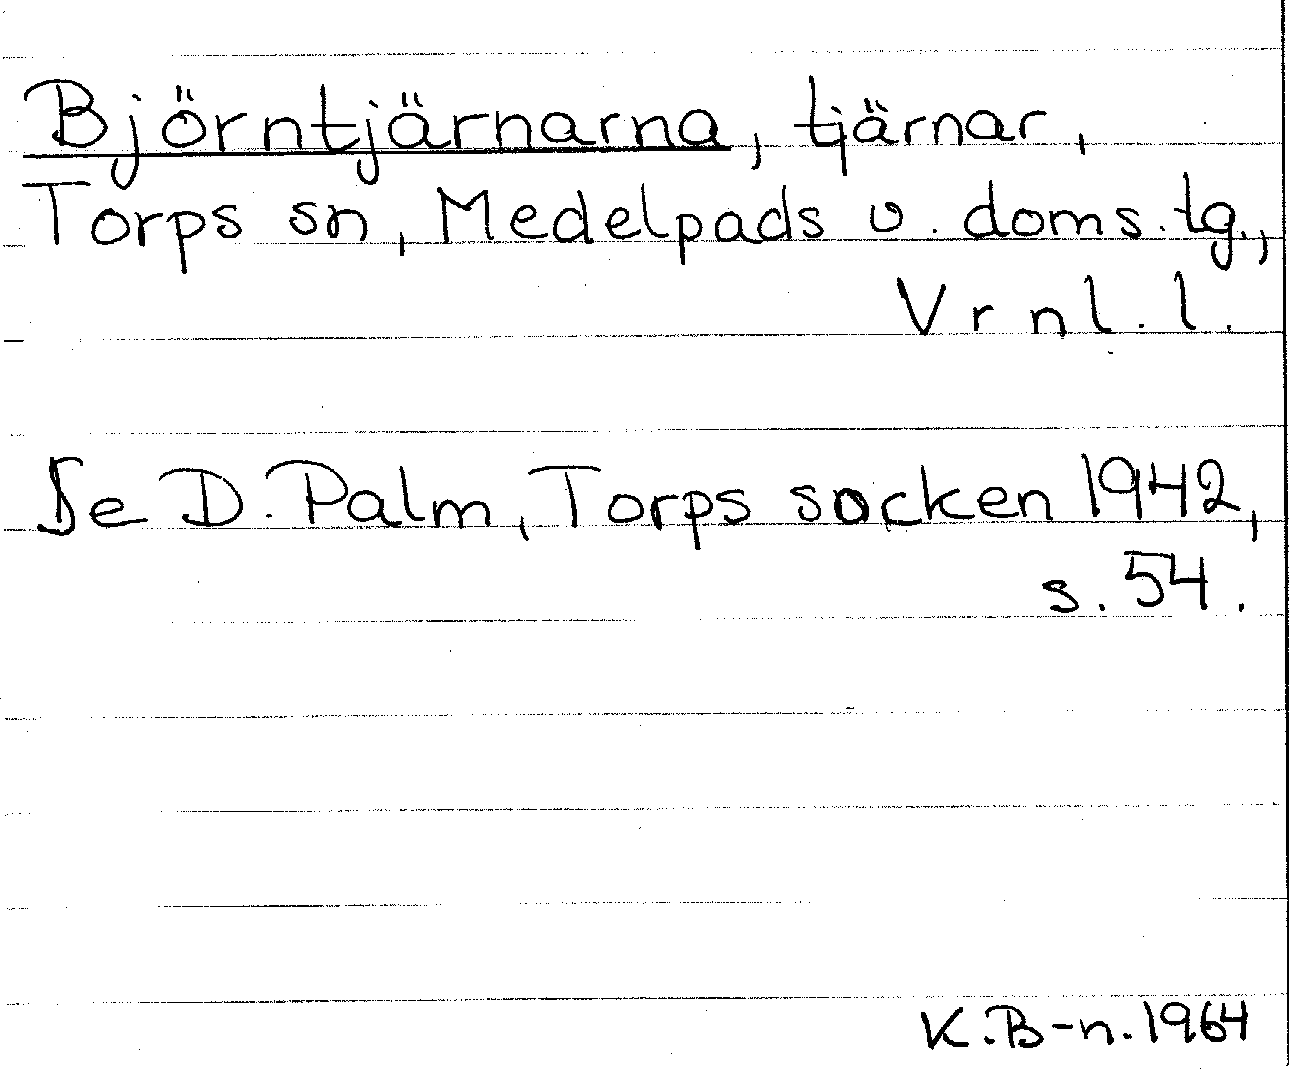 Björntjärnarna, tjärnar,
Torps sn, Medelpads v. doms.tg.,
Vrnl.l.
Se D. Palm, Torps socken 1942,
s. 54.
K.B-n. 1964